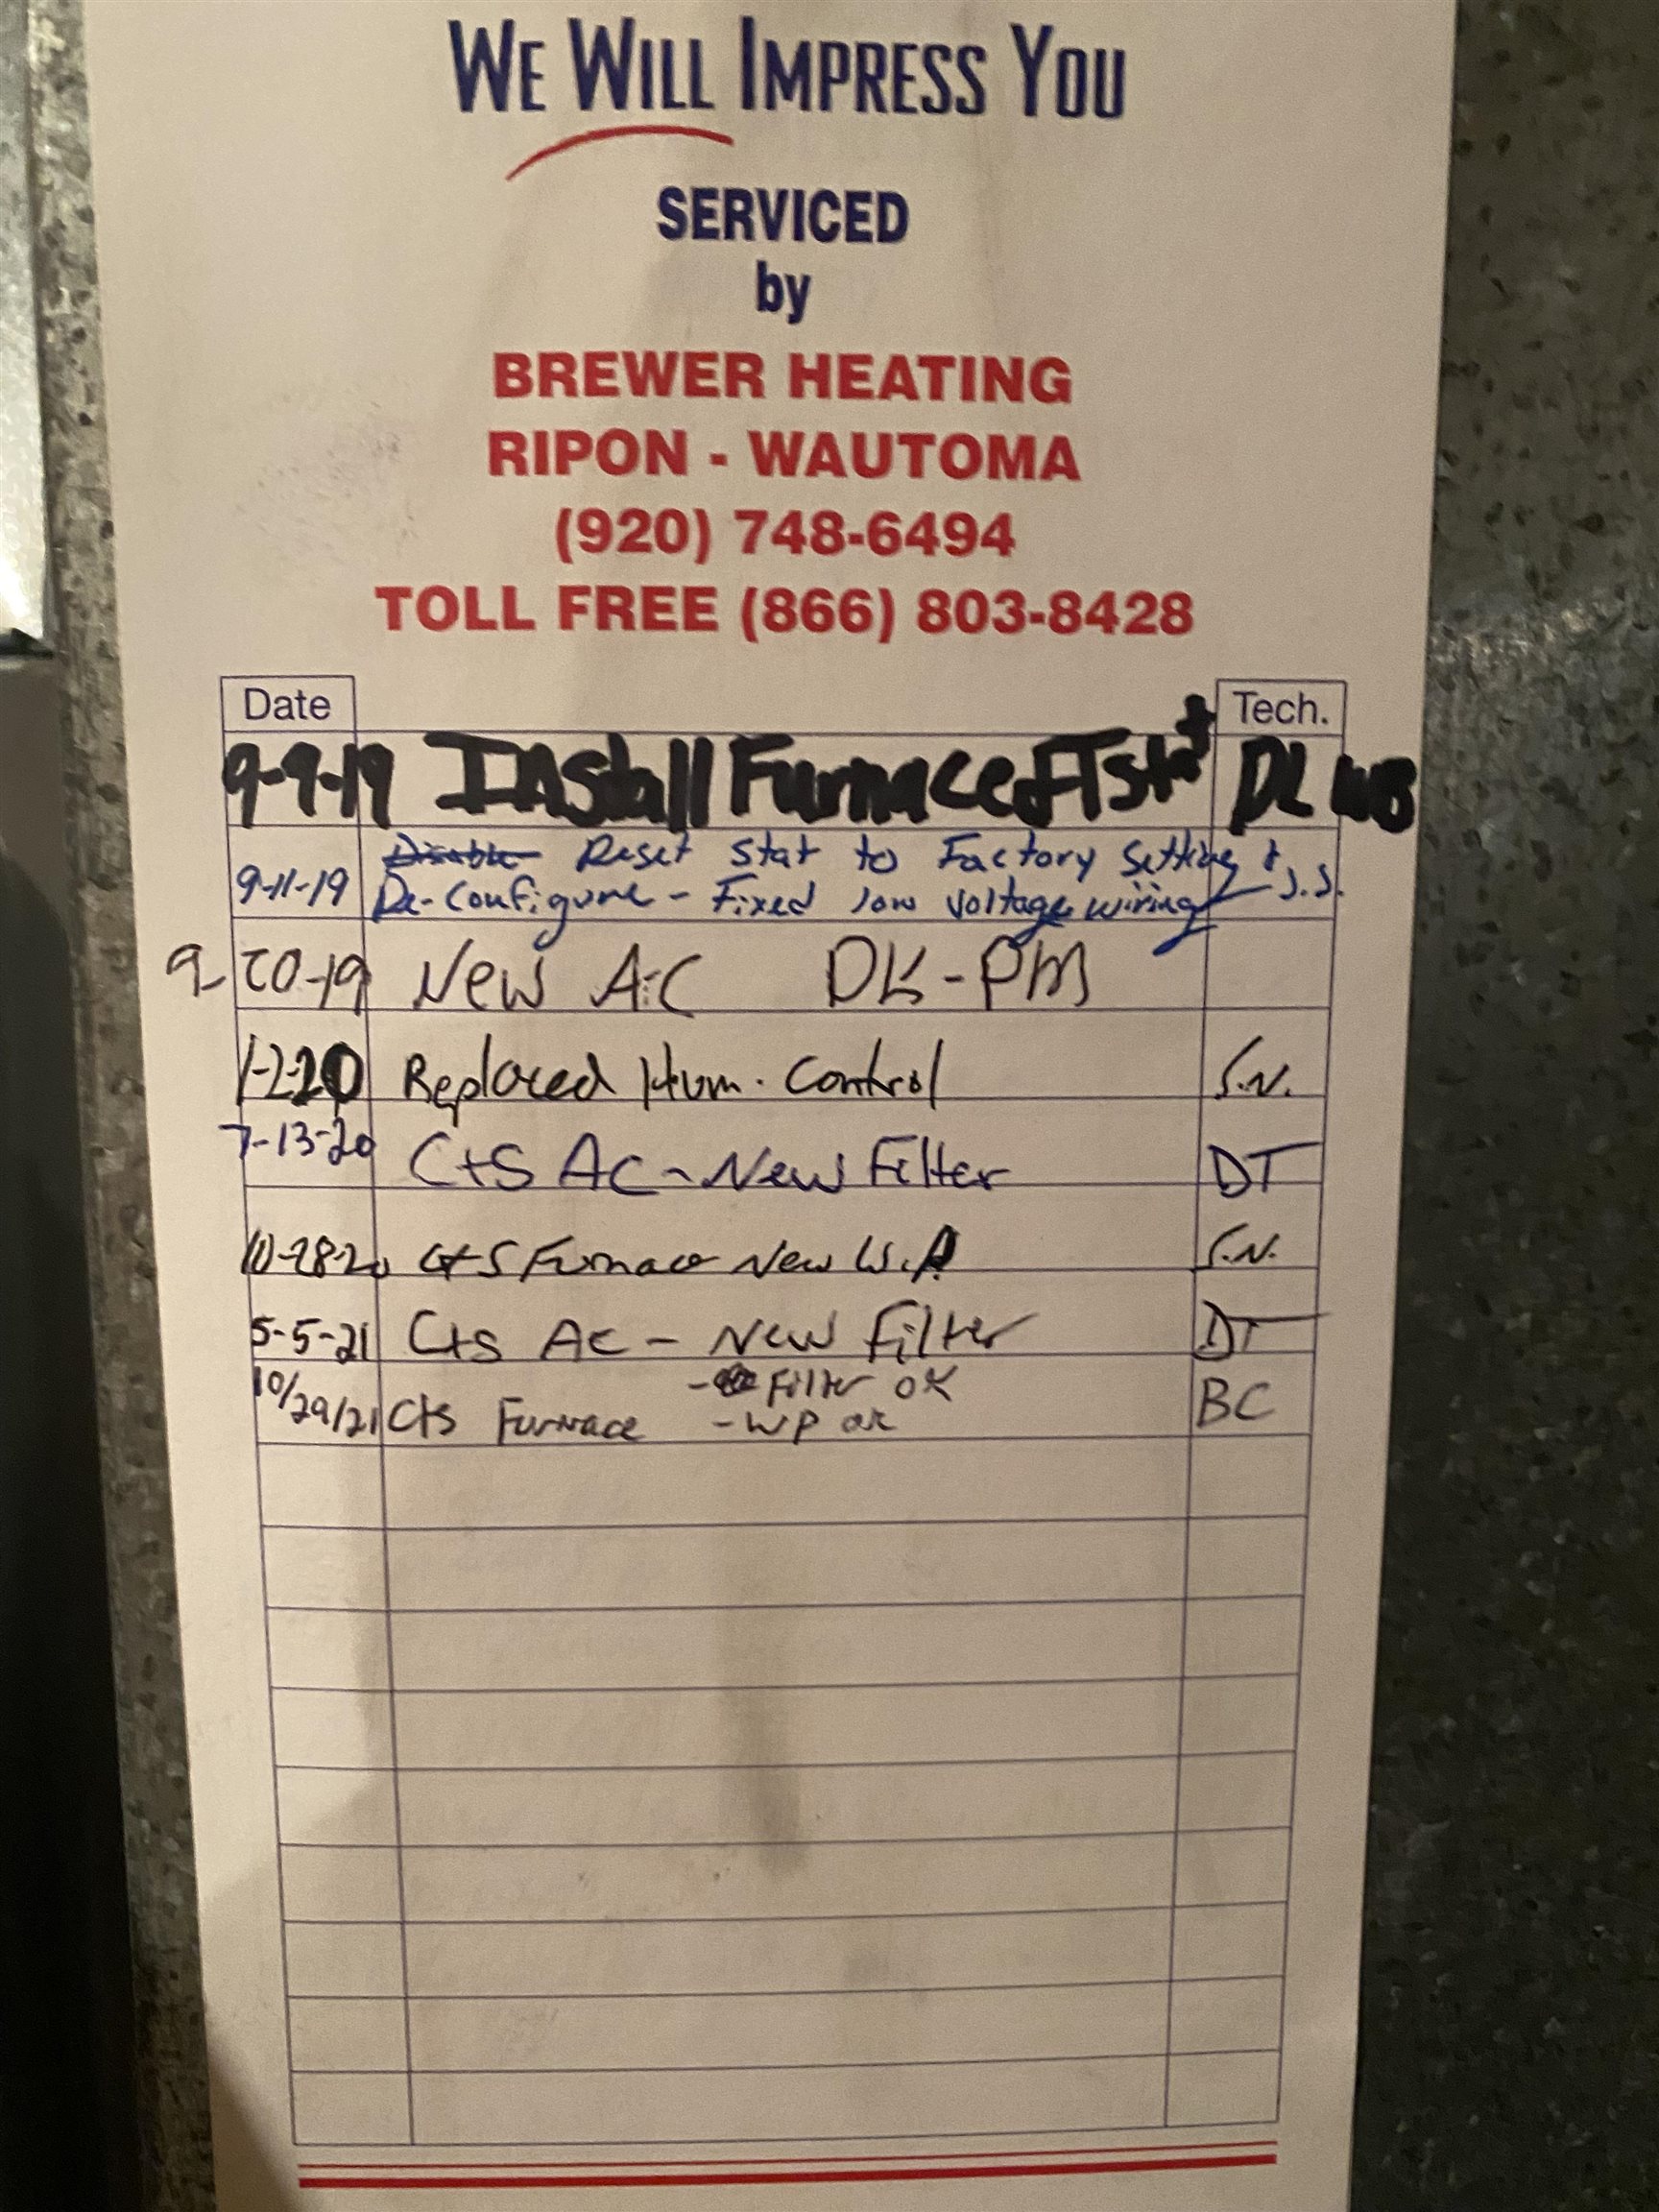 WE WILL IMPRESS YOU
SERVICED
by
BREWER HEATING
RIPON - WAUTOMA
(920) 748-6494
TOLL FREE (866) 803-8428
Date Tech.
9-9-19 Install Furnace + Tstat DL
Disable Reset Stat to Factory Setting &
9-11-19 Re-Configure - Fixed low voltage wiring J.S.
9-20-19 New A.C DK-PM
1-2-20 Replaced Hum. Control S.N.
7-13-20 C+S AC - New Filter DT
10-28-20 C+S Furnace New W.P. S.N.
5-5-21 C+S AC - New Filter DT
- Filter OK
10/29/21 C+S Furnace - WP OK BC